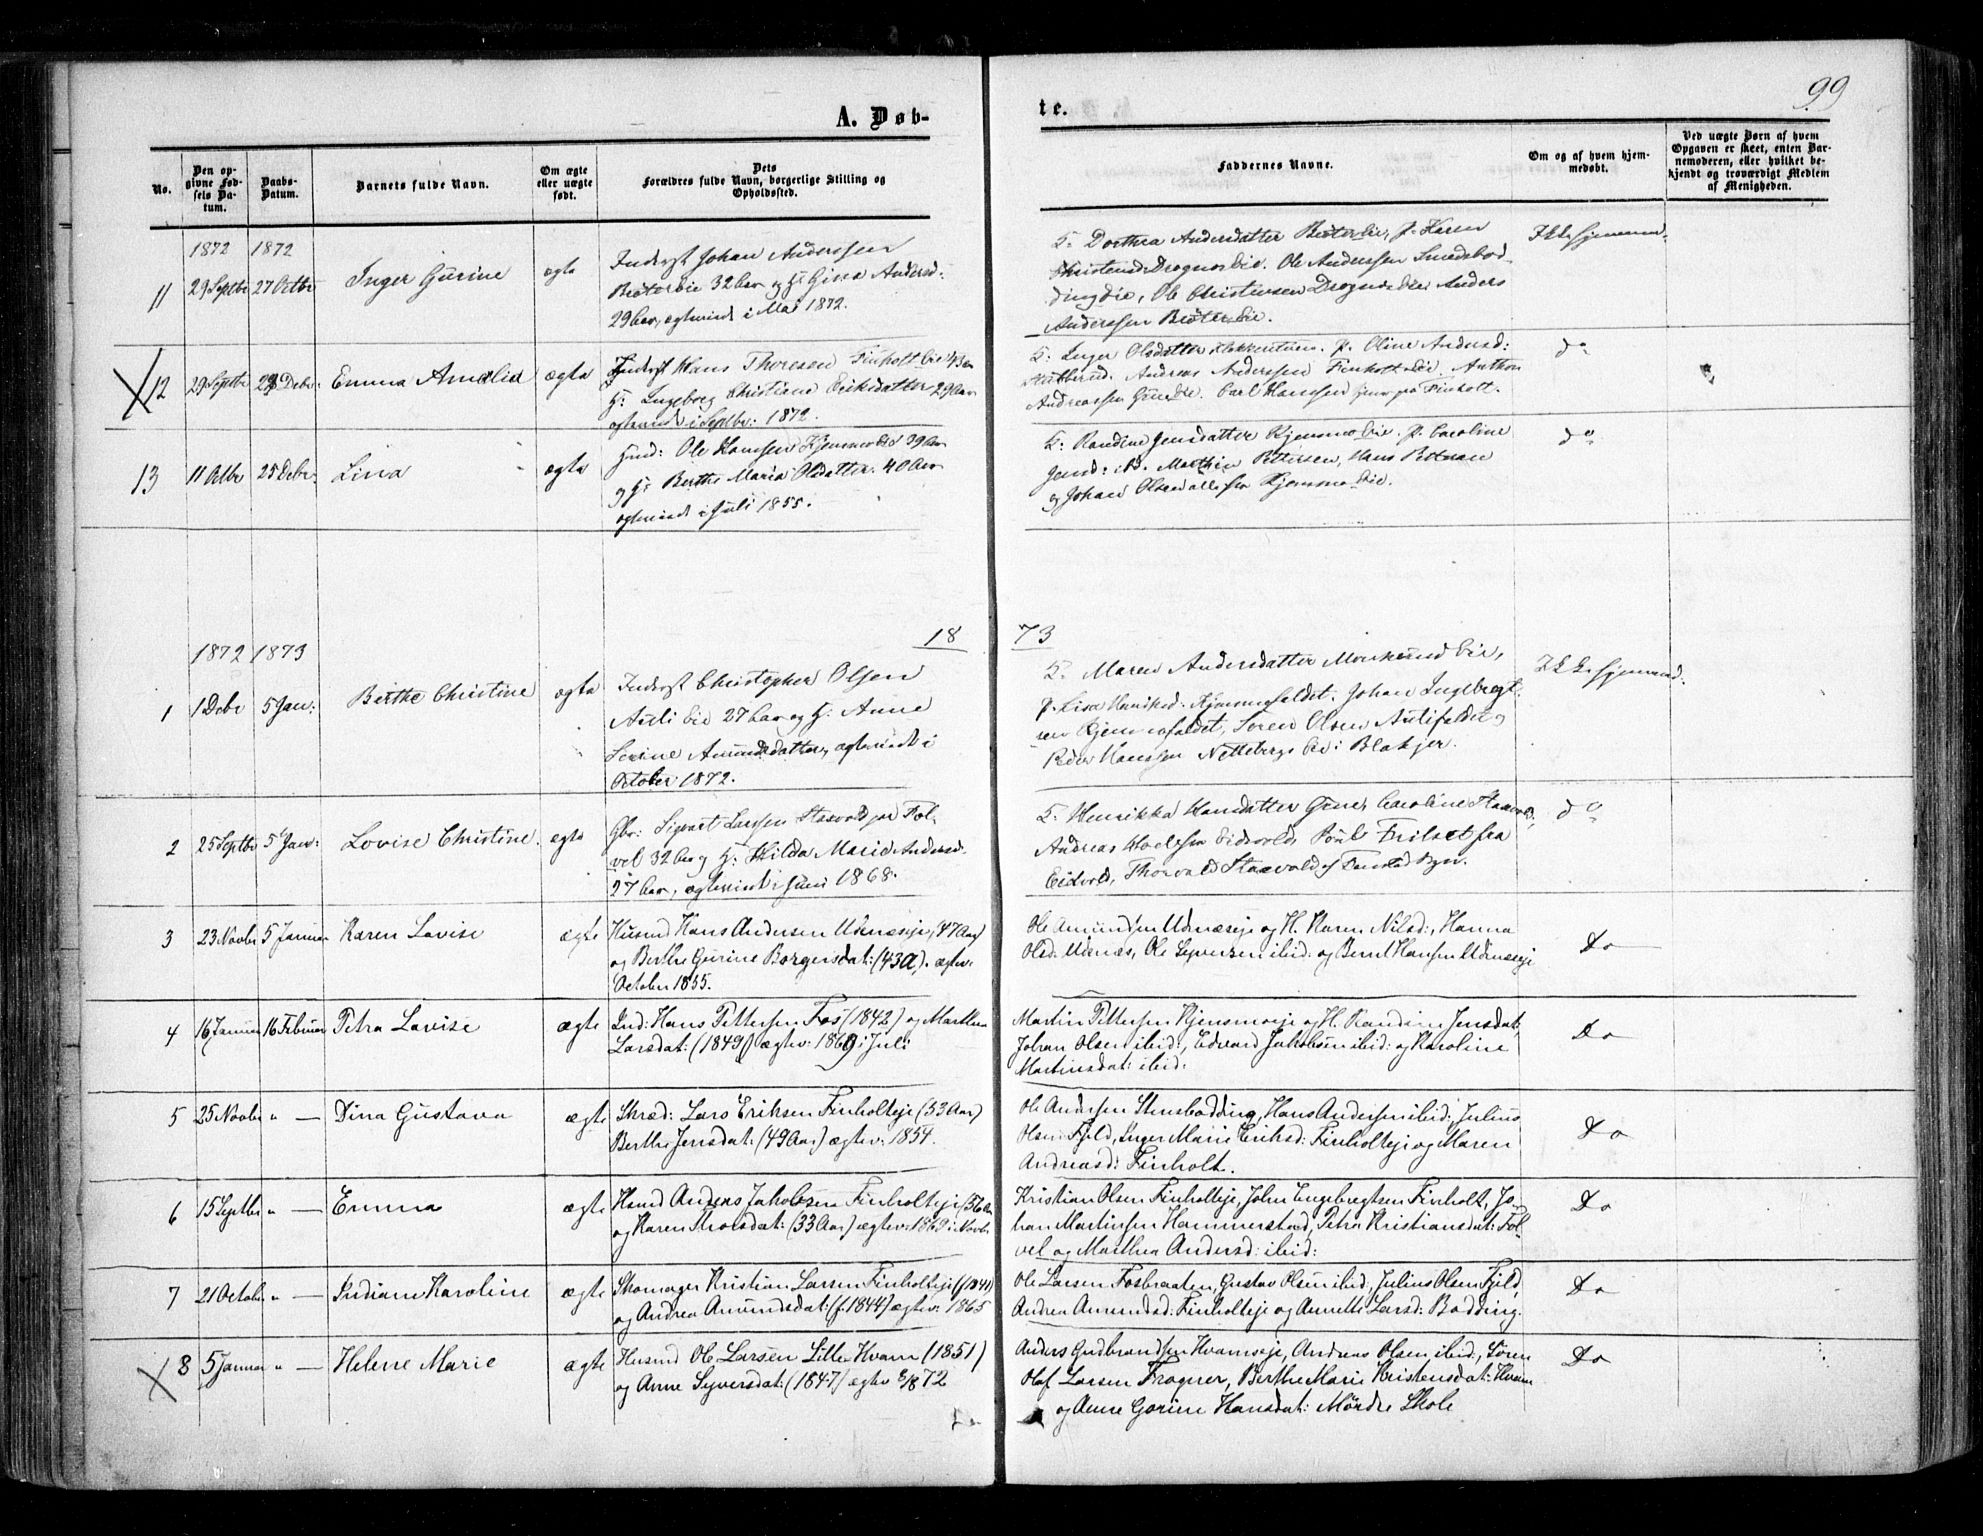 99
A. Døb-
te.
No.
Den op-
givne Fød-
sels Da-
tum.
Daabs-
Datum.
Barnets fulde Navn.
Om ægte
eller uægte
født.
Dets
Forældres fulde Navn, borgerlige Stilling og
Opholdssted.
Faddernes Navne.
Om og af hvem hjem-
medøbt.
Ved uægte Børn af hvem
Opgaven er skeet, enten Bar-
nemoderen, eller hvilket be-
kjendt og troværdigt Medlem
af Menigheden.
1872 1872
11 29 Septbr 27 Octbr Inger Gurine ægte
Inderst Johan Anderssen
Brøterbie 32 Aar og H: Gina Andersd:
29 Aar, ægteviede i Mai 1872.
F: Dorthea Andersdatter Brøterbie, p. Karen
Christensd: Drognesbie. Ole Anderssen
Ole Christensen Anders
Anderssen Brøterbie.
12 29 Septbr 29 Debr: Emma Amalia ægte
Inderst Hans Thoresen Finholtbie 43 Aar
H: Ingeborg Christiane Eriksdatter 29 Aar
ægteviede i Septbr: 1872.
F: Inger Olsdatter p. Oline Andersd:
Andreas Anderssen Finholtbie. Anthon
Andreassen Carl Hanssen Finholt.
do
13 11 Octbr 25 Debr. Lina ægte
Husd: Ole Hanssen Kjensmobie 39 Aar
og H: Berthe Maria Olsdatter 40 Aar
ægteviede i Juli 1855.
F: Randine Jensdatter Kjensmobie. p. Caroline
Jensd: ibd. Martin Petersen, Hans
og Johan Olsen alle fra Kjensmobie.
do
18 73
1872 1873
1 1 Debr 5 Jan: Berthe Christine ægte
Inderst Christopher Olsen
Aulibie 27 Aar og H: Anne
Serine Amundsdatter, ægteviede i
October 1872.
F: Maren Andersdatter bie,
p. Lisa Johan Ingebregt-
sen Soren Olsen Aulifaldet og
Peder Hanssen Nettebergsbie i Blakjer.
2 25 Septbr 5 Jan: Lovise Christine. ægte
Gbr: Sigvart Larssen Staxvold paa Fol-
vel 32 Aar og H: Hilda Maria Andersd.
27 Aar, ægteviet i Juni 1868.
F: Henrikka Hansdatter Caroline Staxvold,
Andreas fra Eidsvold, Poul Frilset fra
Eidsvold, Thorvald Staxvold
do
3 23 Novbr 5 Januar Karen Lovise ægte
Husmd Hans Andersen Udnæseje, (47 Aar)
og Berthe Gurine Borgersdat: (43 A). ægtev.
October 1855.
Ole Amundsen Udnæseje og H. Karen Nilsd:, Hanna
Olsd. Udnæs, Ole Syversen ibid: og Bernt Hansen Udnæseje
Do
4 16 Januar 16 Februar Petra Lovise ægte
Ind: Hans Pettersen Fos (1842) og Marthea
Larsdat: (1849) ægtev: 1869 i Juli
Martin Pettersen Kjensmoeje og H. Randine Jensdat:
Johan Olsen ibid:, Edvard Jakobsen ibid: og Karoline
Martinsdat: ibid:
Do
5 25 Novbr " — Dina Gustava ægte
Skræd: Lars Eriksen Finholteje (53 Aar)
Berthe Jensdat: (49 Aar) ægtev: 1854.
Ole Andersen Stensbødding, Hans Andersen ibid:, Julius
Olsen Fjeld, Inger Marie Eriksd: Finholteje og Maren
Andreasd: Finholt.
Do
6 15 Septbr " — Emma ægte
Husmd Anders Jakobsen Finholteje (56 Aar
og Karen Thorsdat: (33 Aar) ægtev: 1869 i Novbr
Kristian Olsen Finholteje, John Engebregtsen Finholt, Jo-
han Martinsen Hammerstad, Petra Kristiansdat: Fol-
vel og Marthea Andersd: ibid:
Do
7 21 October " — Indiane Karoline ægte
Skomager Kristian Larsen Finholteje (f 1841)
og Andrea Amundsdat: (f. 1844) ægtev: 1865
Ole Larsen Fosbraaten, Gustav Olsen ibid:, Julius Olsen Fjeld,
Andrea Amundsd: Finholteje og Annette Larsd: Bødding.
Do
8 5 Januar " — Helene Marie ægte
Husmd Ole Larsen Lille Kvam (1851)
og Anne Syversdat: (1847) ægtev 72
Anders Gudbrandsen Kvamseje, Andreas Olsen ibid:, Søren
Olaf Larsen Frogner, Berthe Marie Kristensdat: Kvam
og Anne Gorine Hansdat: Mørdre Skole
Do